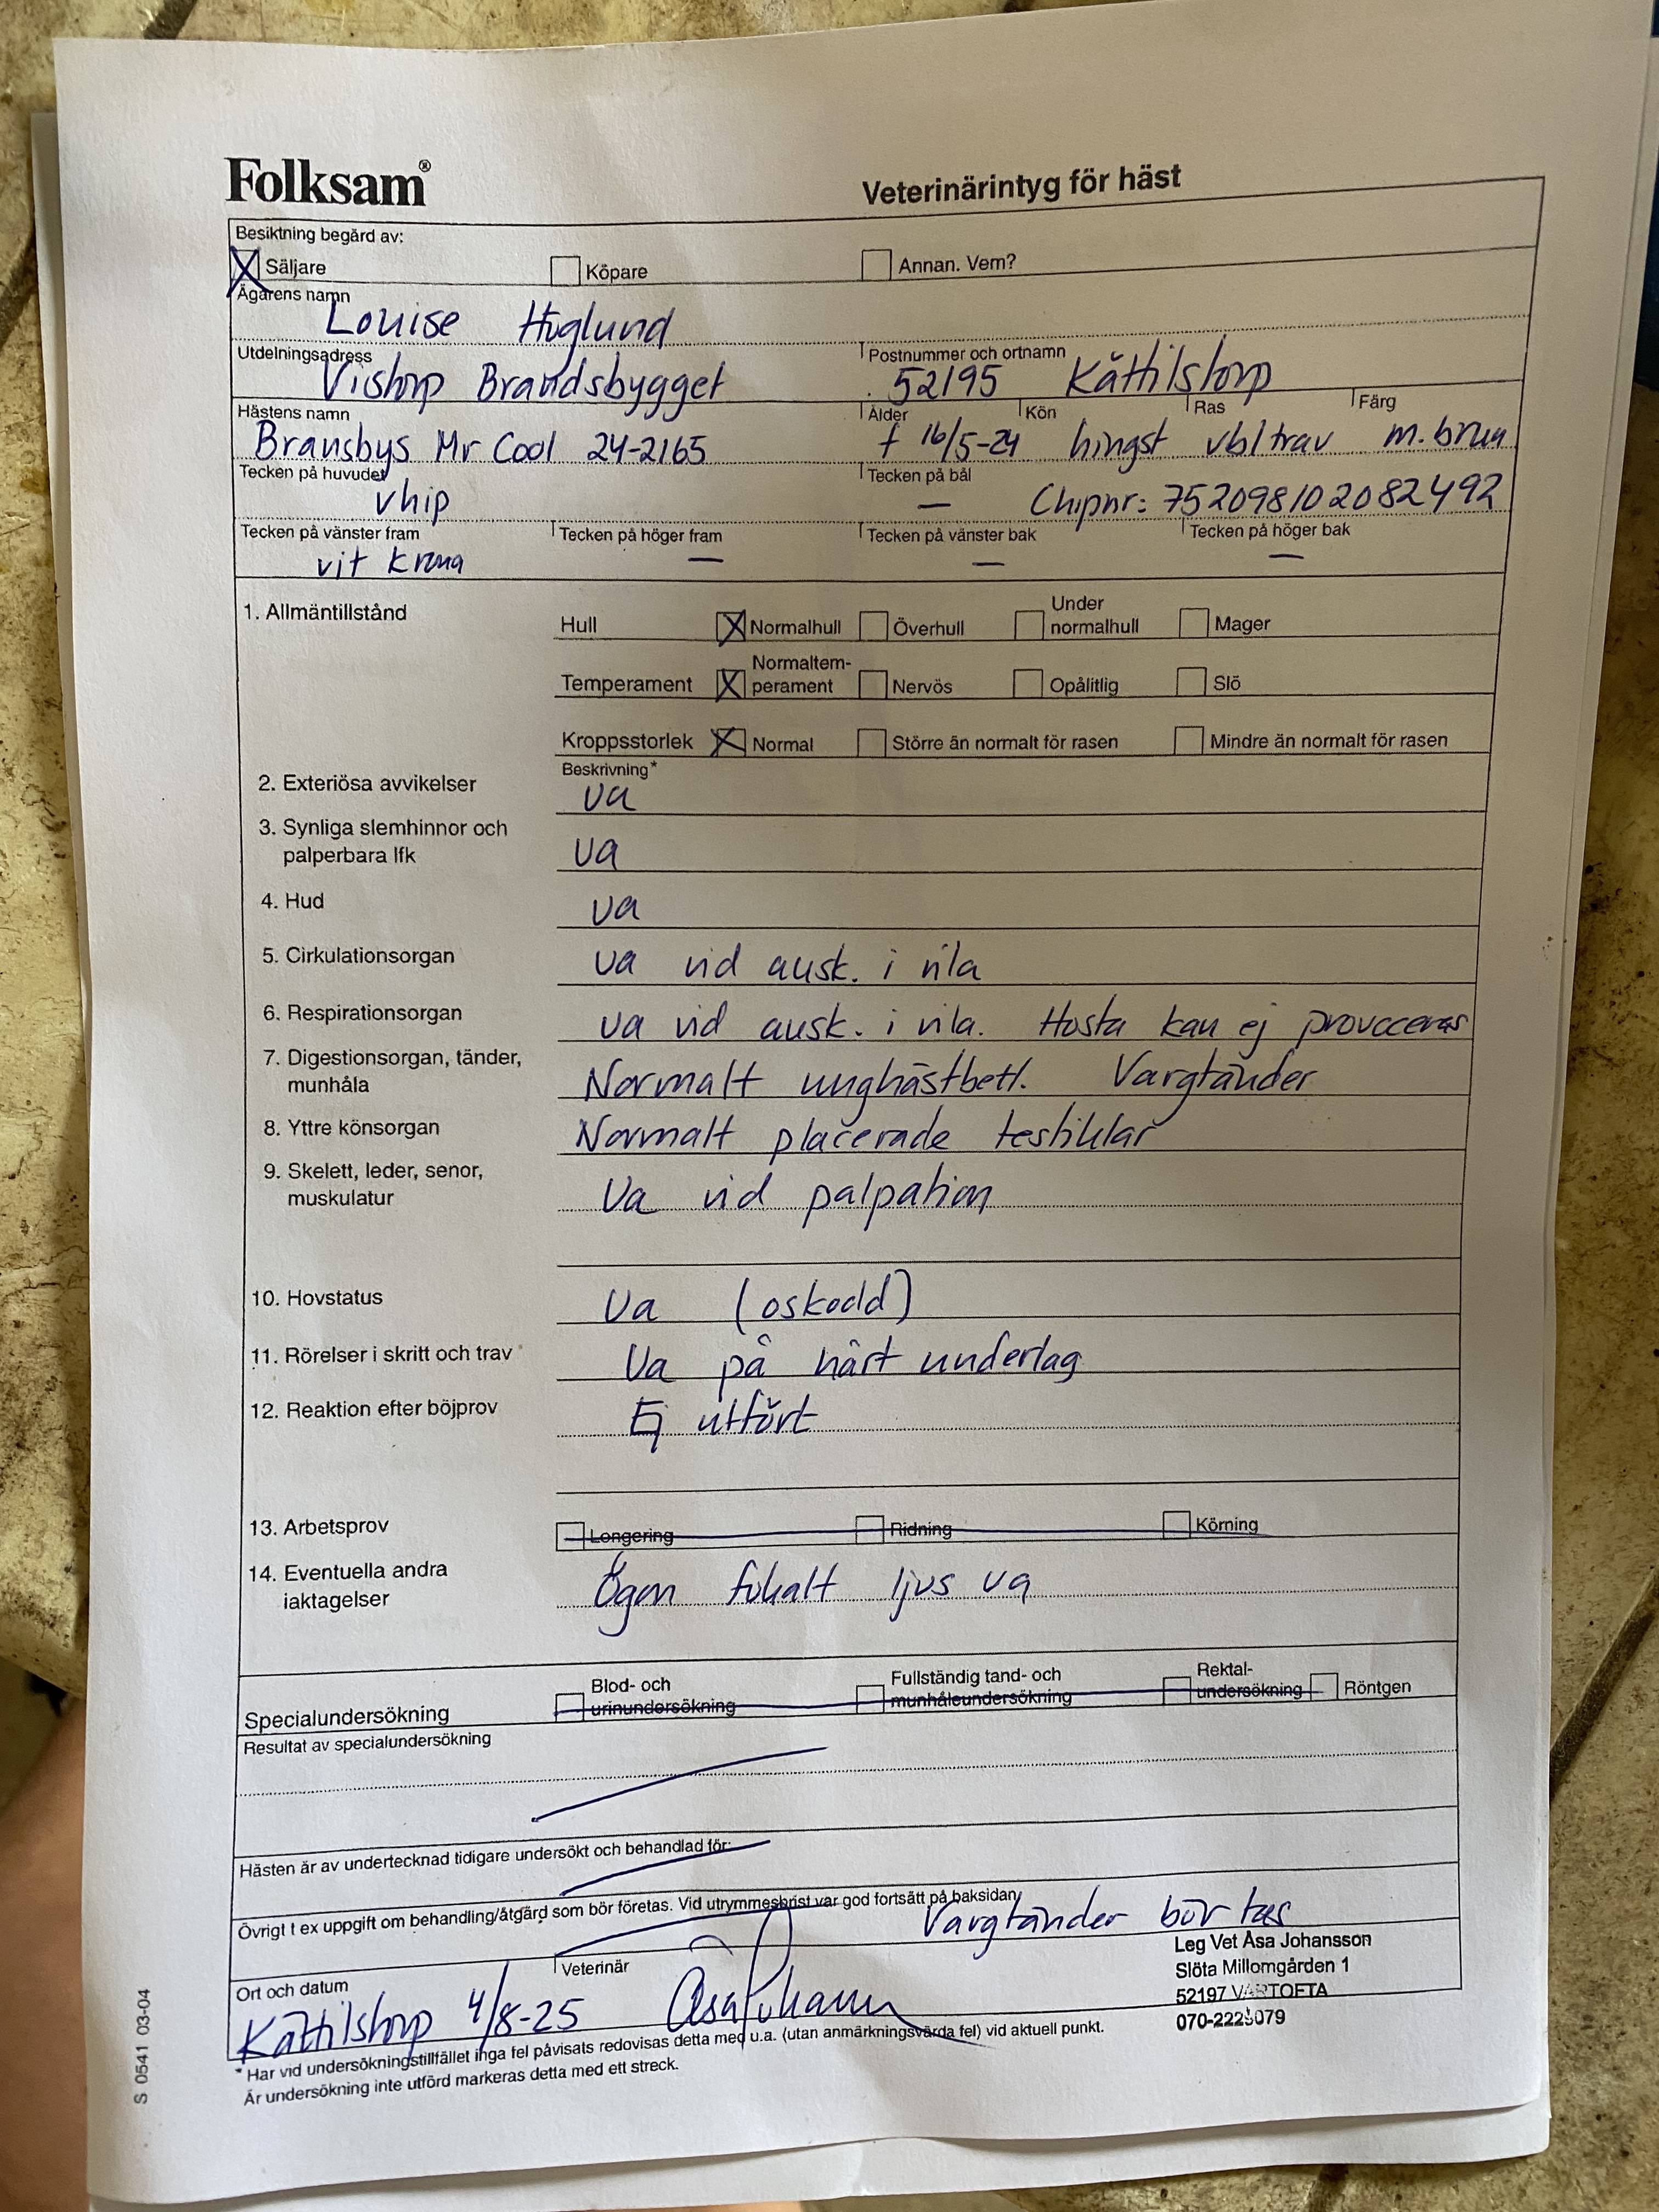 Folksam®
Veterinärintyg för häst
Besiktning begärd av:
X Säljare Köpare Annan. Vem?
Ägarens namn
Louise Höglund
Utdelningsadress Postnummer och ortnamn
Vistorp Brandsbygget 52195 Kättilstorp
Hästens namn Ålder Kön Ras Färg
Bransbys Mr Cool 24-2165 f 16/5-24 hingst vbl trav m.brun
Tecken på huvudet Tecken på bål
vhip — Chipnr: 752098102082492
Tecken på vänster fram Tecken på höger fram Tecken på vänster bak Tecken på höger bak
vit krona — — —
1. Allmäntillstånd
Hull X Normalhull Överhull Under normalhull Mager
Temperament X Normaltem-
perament Nervös Opålitlig Slö
Kroppsstorlek X Normal Större än normalt för rasen Mindre än normalt för rasen
Beskrivning*
2. Exteriösa avvikelser ua
3. Synliga slemhinnor och
palperbara lfk ua
4. Hud ua
5. Cirkulationsorgan ua vid ausk. i vila
6. Respirationsorgan ua vid ausk. i vila. Hosta kan ej provoceras
7. Digestionsorgan, tänder,
munhåla Normalt unghästbett. Vargtänder
8. Yttre könsorgan Normalt placerade testiklar
9. Skelett, leder, senor,
muskulatur Ua vid palpation
10. Hovstatus Ua (oskodd)
11. Rörelser i skritt och trav Ua på hårt underlag
12. Reaktion efter böjprov Ej utfört
13. Arbetsprov Longering Ridning Körning
14. Eventuella andra
iaktagelser Ögon fokalt ljus ua
Specialundersökning Blod- och
urinundersökning Fullständig tand- och
munhåleundersökning Rektal-
undersökning Röntgen
Resultat av specialundersökning
Hästen är av undertecknad tidigare undersökt och behandlad för:
Övrigt t ex uppgift om behandling/åtgärd som bör företas. Vid utrymmesbrist var god fortsätt på baksidan
Vargtänder bör tas
Ort och datum Veterinär
Kättilstorp 4/8-25 Åsa Johansson
Leg Vet Åsa Johansson
Slöta Millomgården 1
52197 VARTOFTA
070-2225079
* Har vid undersökningstillfället inga fel påvisats redovisas detta med u.a. (utan anmärkningsvärda fel) vid aktuell punkt.
Är undersökning inte utförd markeras detta med ett streck.
S 0541 03-04